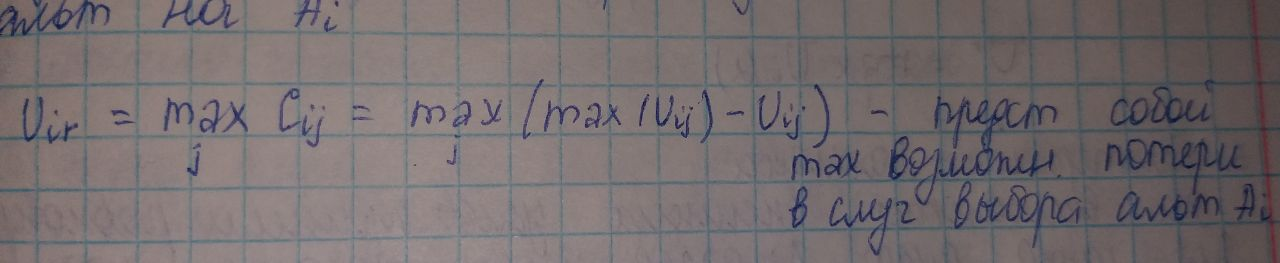 альт на Ai
Uir = max Cij = max (max (Uij) - Uij) - предст собой
j j max возможн. потери
в случ выбора альт Ai